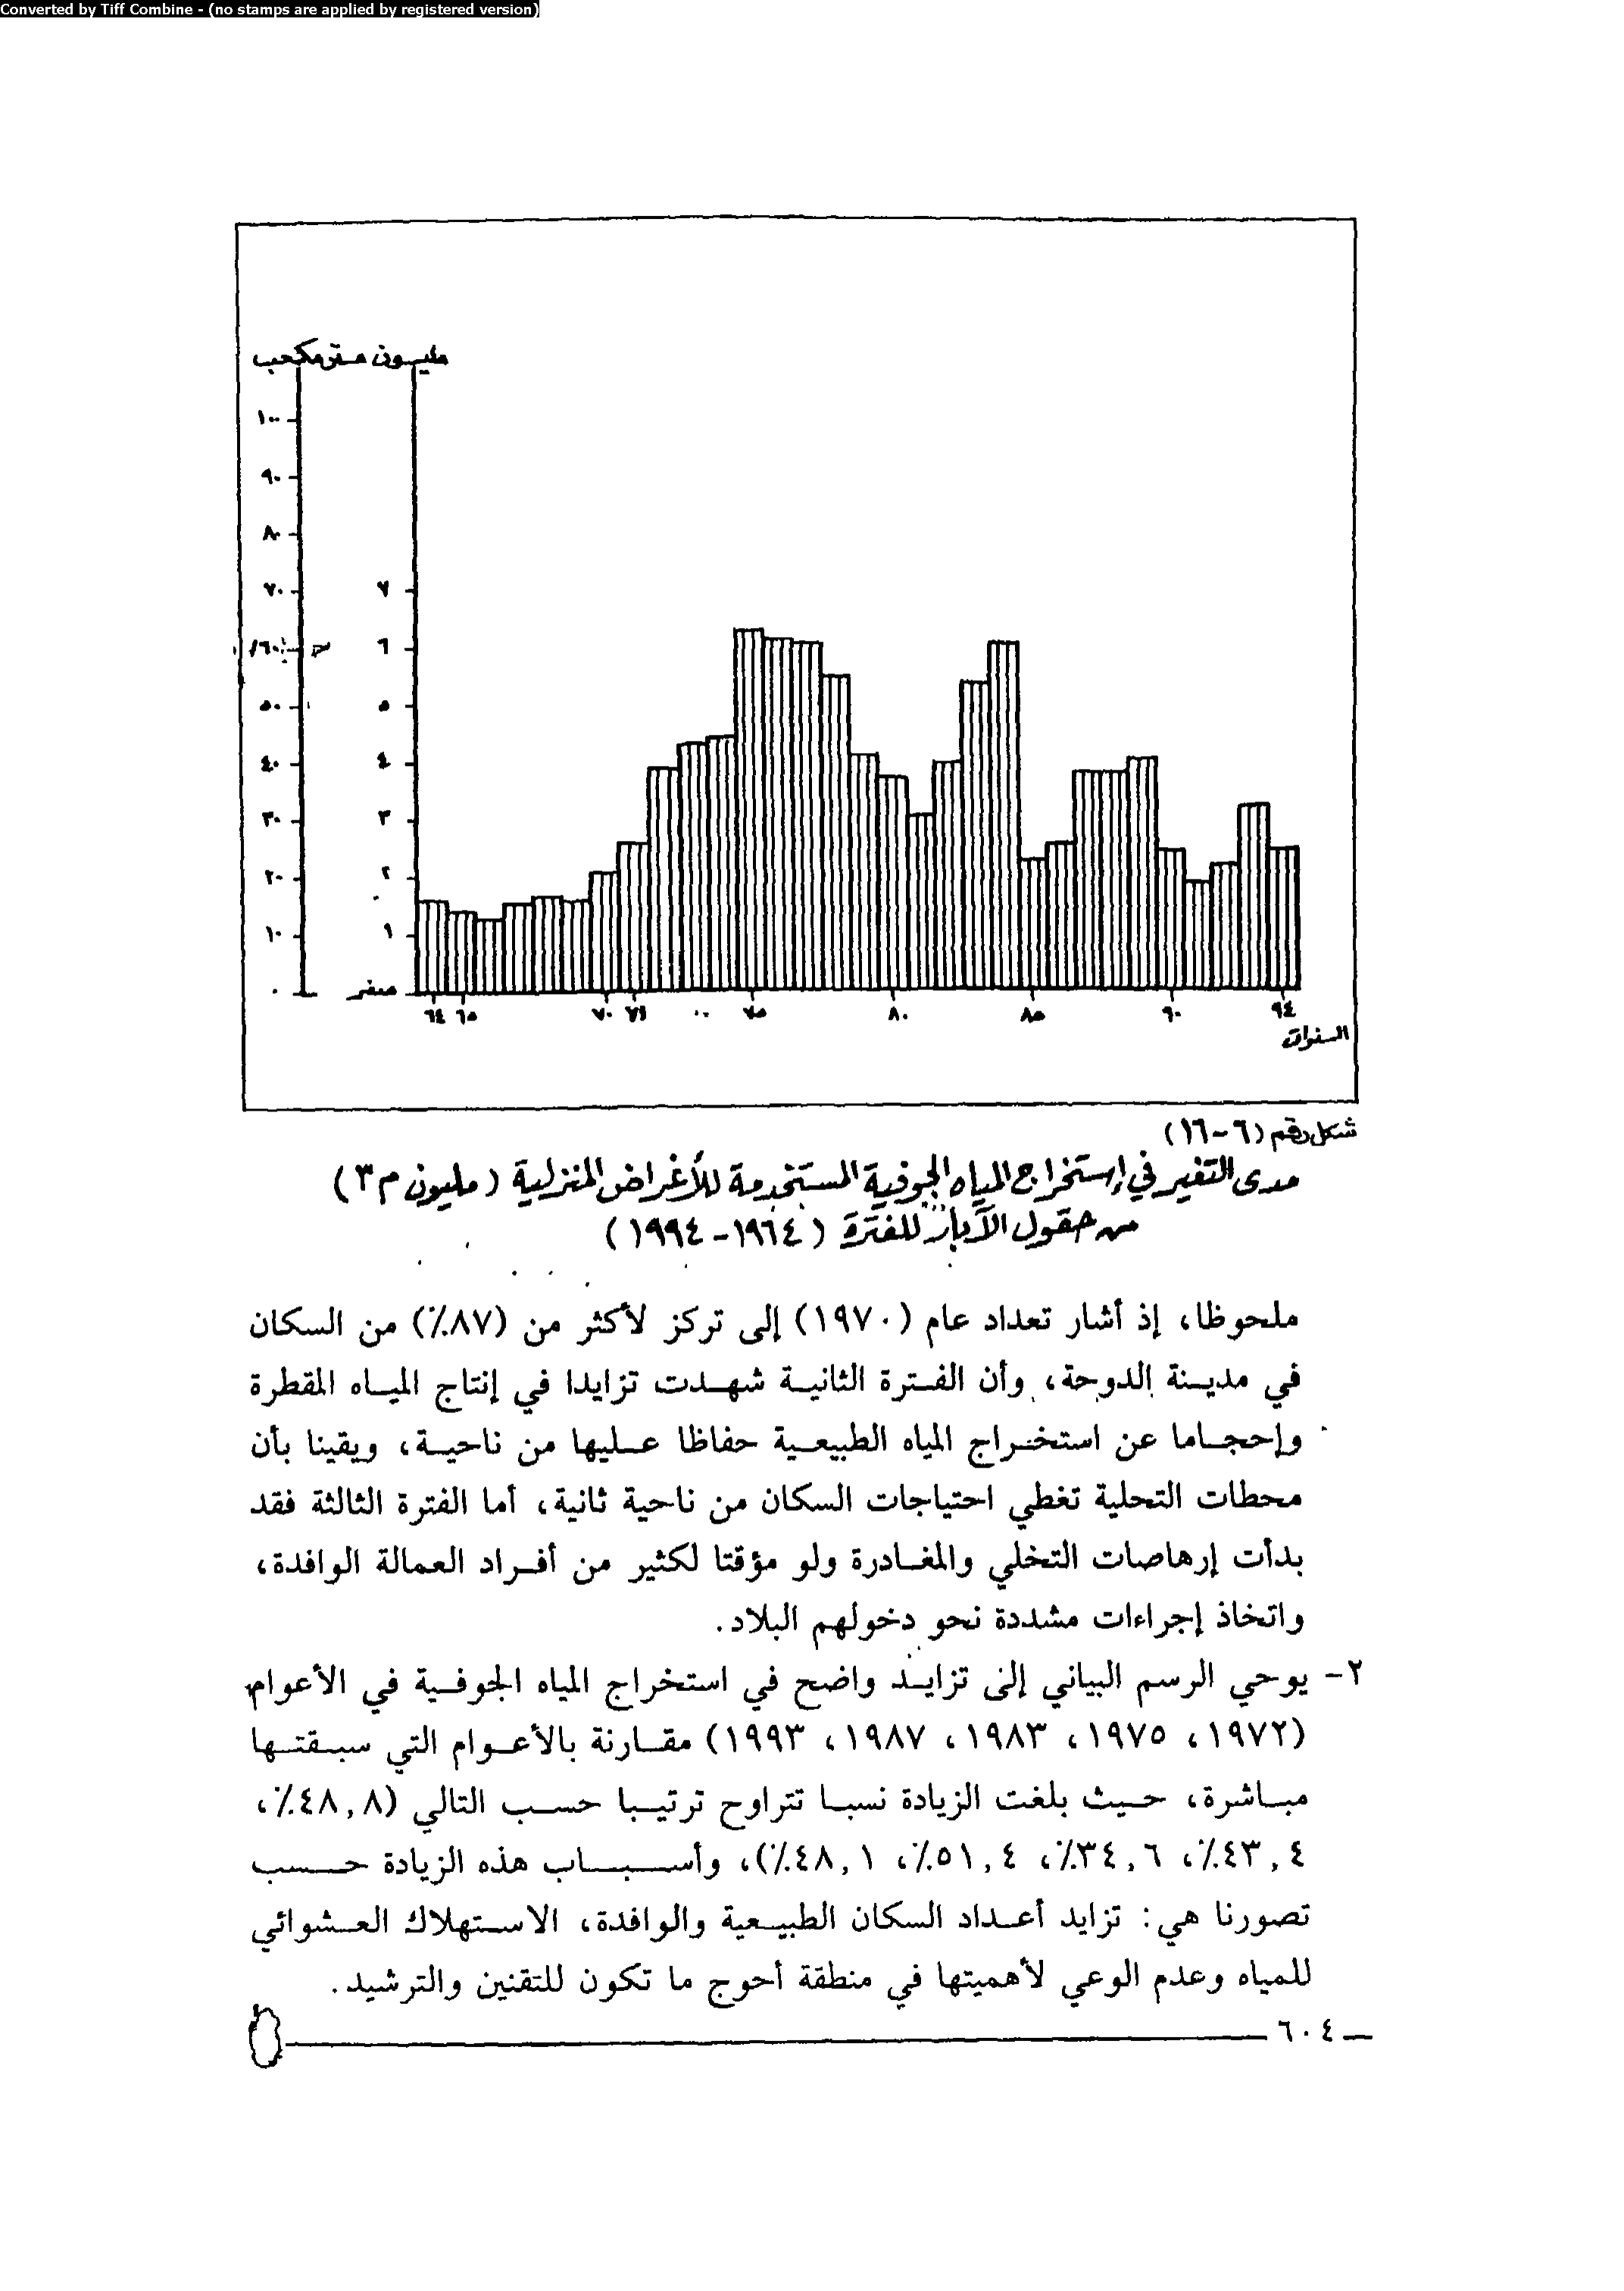 Converted by Tiff Combine - (no stamps are applied by registered version)
مليون متر مكعب
١٠٠
٩٠
٨٠
٧٠ ٧
٦٠ ٦
٥٠ ٥
٤٠ ٤
٣٠ ٣
٢٠ ٢
١٠ ١
٠ صفر
٦٤ ٦٥ ٧٠ ٧١ ٧٥ ٨٠ ٨٥ ٩٠ ٩٤
السنوات
شكل رقم (٦-١٦)
مدى التغير في إستخراج المياه الجوفية المستخدمة للأغراض المنزلية (مليون م٣)
من حقول الآبار للفترة (١٩٦٤-١٩٩٤)
ملحوظا، إذ أشار تعداد عام (١٩٧٠) إلى تركز لأكثر من (٨٧٪) من السكان
في مدينة الدوحة، وأن الفترة الثانية شهدت تزايدا في إنتاج المياه المقطرة
وإحجاما عن استخراج المياه الطبيعية حفاظا عليها من ناحية، ويقينا بأن
محطات التحلية تغطي احتياجات السكان من ناحية ثانية، أما الفترة الثالثة فقد
بدأت إرهاصات التخلي والمغادرة ولو مؤقتا لكثير من أفراد العمالة الوافدة،
واتخاذ إجراءات مشددة نحو دخولهم البلاد.
٢- يوحي الرسم البياني إلى تزايد واضح في استخراج المياه الجوفية في الأعوام
(١٩٧٢، ١٩٧٥، ١٩٨٣، ١٩٨٧، ١٩٩٣) مقارنة بالأعوام التي سبقتها
مباشرة، حيث بلغت الزيادة نسبا تتراوح ترتيبا حسب التالي (٤٨,٨٪،
٤٣,٤٪، ٣٤,٦٪، ٥١,٤٪، ٤٨,١٪)، وأسباب هذه الزيادة حسب
تصورنا هي: تزايد أعداد السكان الطبيعية والوافدة، الاستهلاك العشوائي
للمياه وعدم الوعي لأهميتها في منطقة أحوج ما تكون للتقنين والترشيد.
٦٠٤